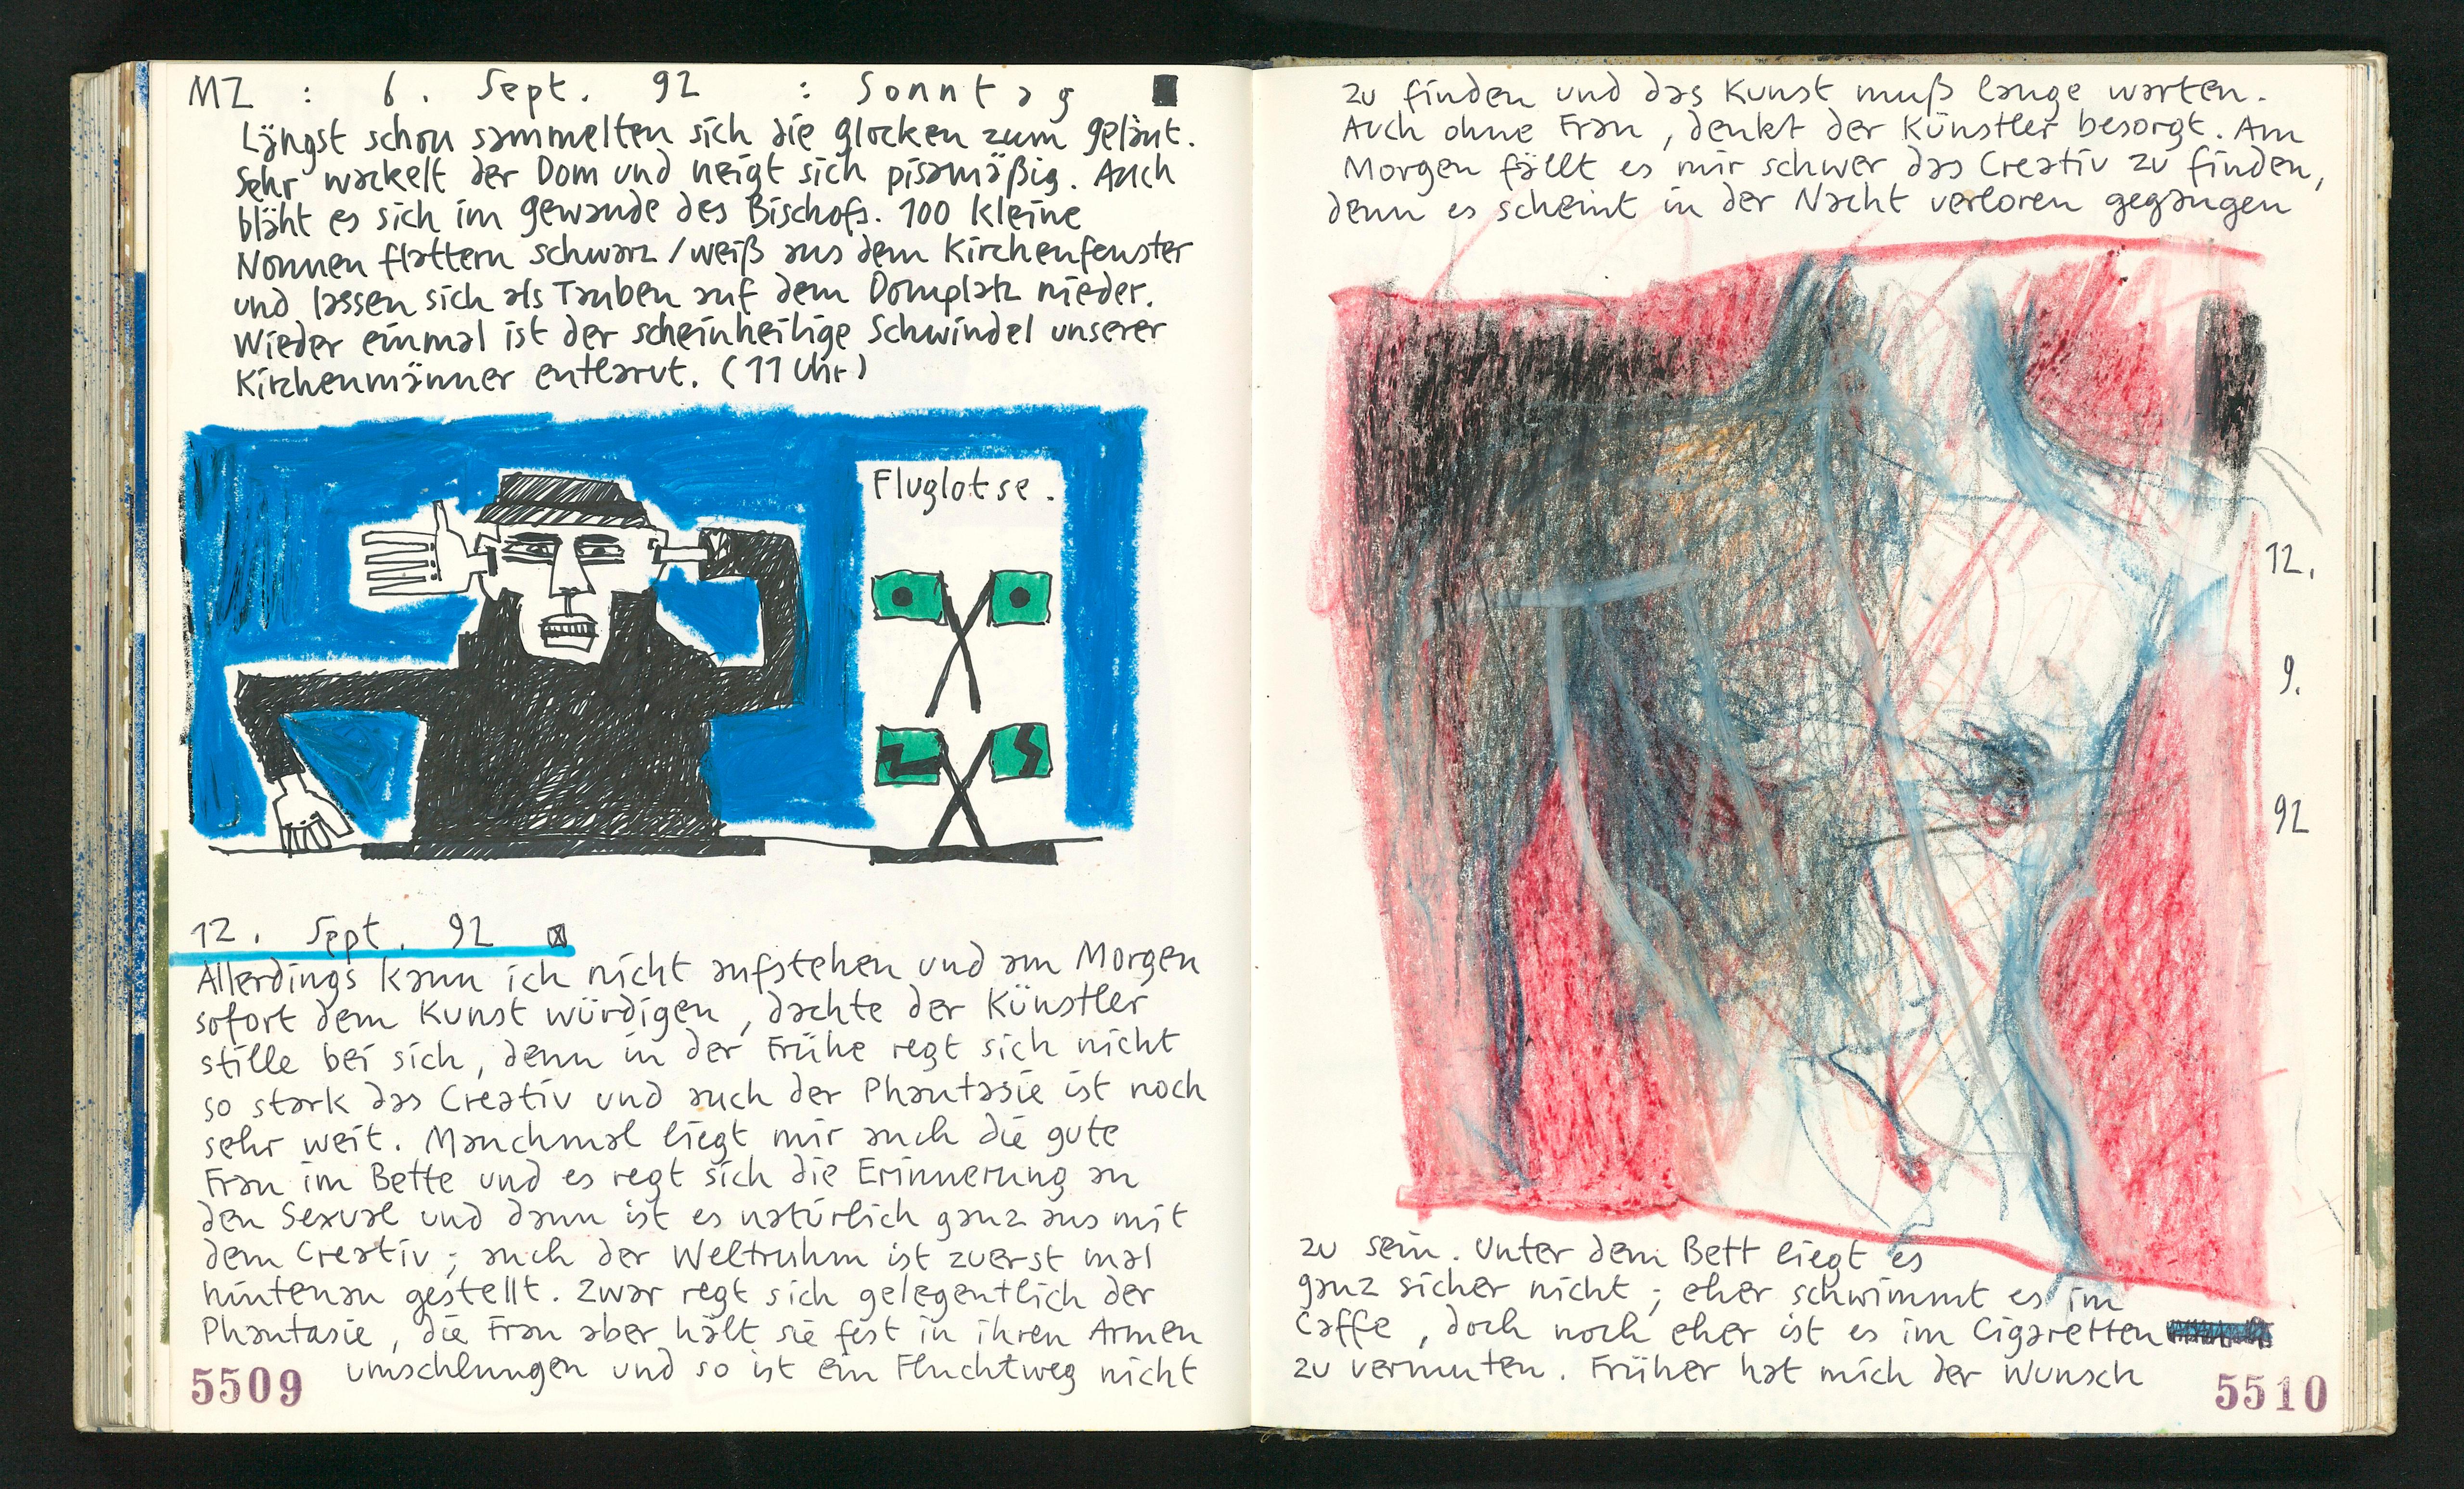 MZ : 6. Sept. 92 : Sonntag
Längst schon sammelten sich die Glocken zum Geläut.
Sehr wackelt der Dom und neigt sich pisamäßig. Auch
bläht es sich im Gewande des Bischofs. 100 kleine
Nonnen flattern schwarz/weiß aus dem Kirchenfenster
und lassen sich als Tauben auf dem Domplatz nieder.
Wieder einmal ist der scheinheilige Schwindel unserer
Kirchenmänner entlarvt. (11 Uhr)
Fluglotse.
12. Sept. 92
Allerdings kann ich nicht aufstehen und am Morgen
sofort dem Kunst würdigen, dachte der Künstler
stille bei sich, denn in der Frühe regt sich nicht
so stark das Creativ und auch der Phantasie ist noch
sehr weit. Manchmal liegt mir auch die gute
Frau im Bette und es regt sich die Erinnerung an
den Sexual und dann ist es natürlich ganz aus mit
dem Creativ; auch der Weltruhm ist zuerst mal
hintenan gestellt. Zwar regt sich gelegentlich der
Phantasie, die Frau aber hält sie fest in ihren Armen
umschlungen und so ist ein Fluchtweg nicht
5509
zu finden und das Kunst muß lange warten.
Auch ohne Frau, denkt der Künstler besorgt. Am
Morgen fällt es mir schwer das Creativ zu finden,
denn es scheint in der Nacht verloren gegangen
12.
9.
92
zu sein. Unter dem Bett liegt es
ganz sicher nicht; eher schwimmt es im
Caffe, doch noch eher ist es im Cigaretten
zu vermuten. Früher hat mich der Wunsch
5510